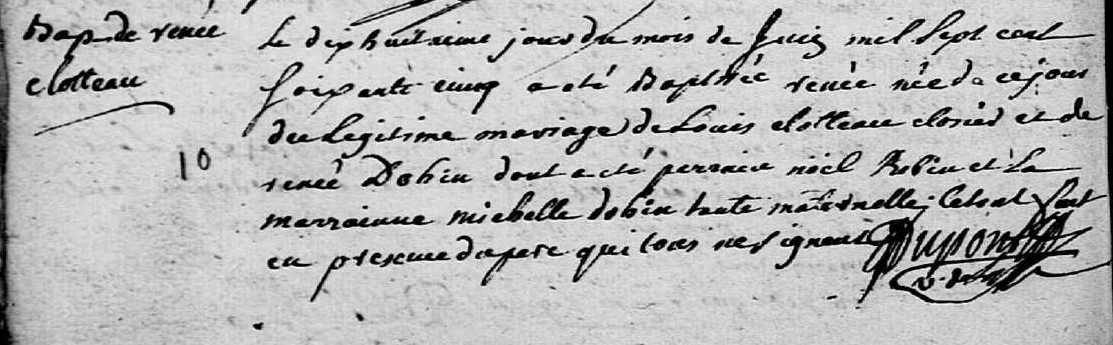 Bap. de renée
clotteau
10
Le dix huitieme jour du mois de Juin mil sept cent
soixante cinq a eté Baptisée renée née de ce jour
du legitime mariage de Louis clotteau closier et de
renée Dobin dont a eté parrain noël Robin et la
marrainne michelle dobin tante maternelle; le tout fait
en presence du pere qui tous ne signent Dupont